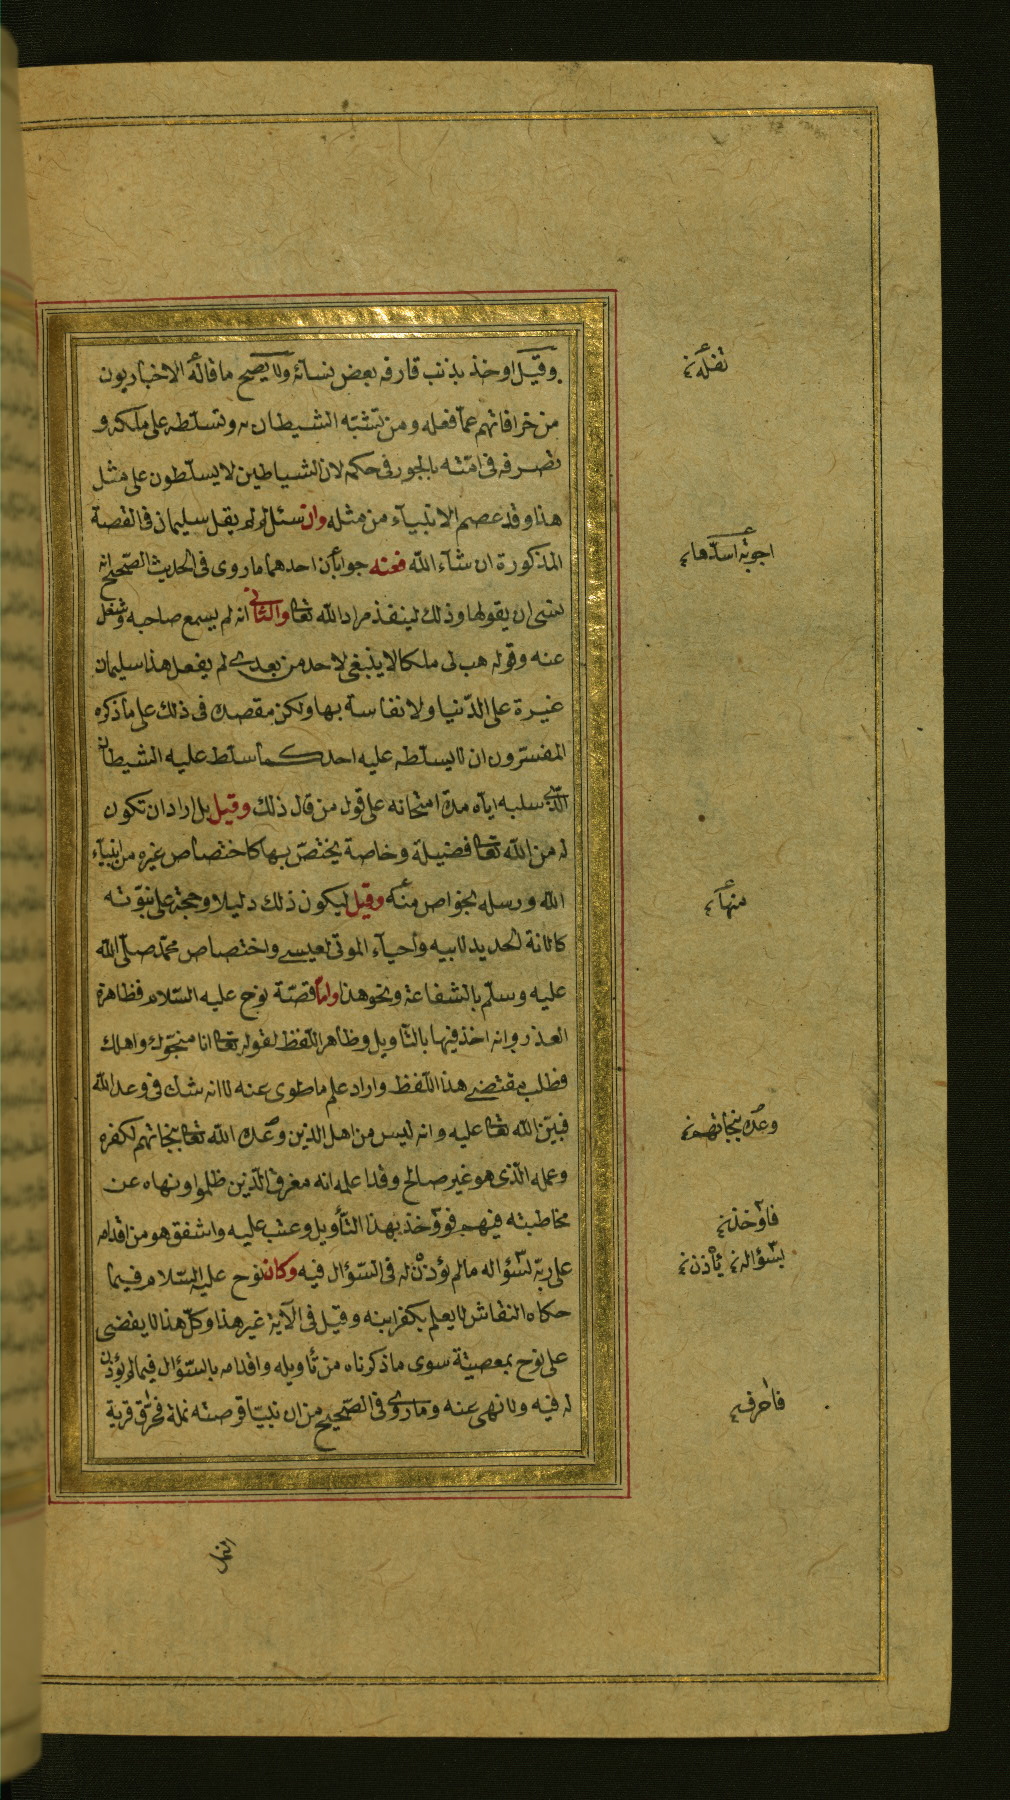 وقيل اوخذ بذنب قارفه بعض نسائه ولا يصح ما قاله الاخباريون
من خرافاتهم عما فعله ومن تشبّه الشيطان به وتسلّطه على ملكه و
تصرفه فى امّته بالجور فى حكمه لان الشياطين لا يسلّطون على مثل
هذا وقد عصم الانبيآء من مثله وان سئل لم لم يقل سليمان فى القصة
المذكورة ان شآء اللّه فعنه جوابان احدهما ما روى فى الحديث الصّحيح انه
نسى ان يقولها وذلك لينفذ مراد اللّه تعا والثانى انه لم يسمع صاحبه وشغل
عنه وقوله هب لى ملكا لا ينبغى لاحد من بعدى لم يفعل هذا سليمان
غيرة على الدّنيا ولا نفاسة بها ولكن مقصده فى ذلك على ما ذكره
المفسّرون ان لا يسلّط عليه احد كما سلّط عليه الشيطان
الّذى سلبه ايّاه مدة امتحانه على قول من قال ذلك وقيل بل اراد ان تكون
له من اللّه تعا فضيلة وخاصة يختصّ بها كاختصاص غيره من انبيآء
اللّه ورسله بخواص منه وقيل ليكون ذلك دليلا وحجة على نبوّته
كالانة الحديد لابيه واحيآء الموتى لعيسى واختصاص محمّد صلّى اللّه
عليه وسلّم بالشفاعة ونحو هذا وامّا قصّة نوح عليه السّلام فظاهرة
العذر وانه اخذ فيها بالتّاويل وظاهر اللّفظ لقوله تعا انا منجّوك واهلك
فطلب مقتضى هذا اللّفظ واراد علم ما طوى عنه لا انه شك فى وعد اللّه
فبيّن اللّه تعا عليه وانه ليس من اهل الذين وعده اللّه تعا بنجاتهم لكفره
وعمله الّذى هو غير صالح وقد اعلمه انه مغرق الّذين ظلموا ونهاه عن
مخاطبته فيهم فووخذ بهذا التّأويل وعتب عليه واشفق هو من اقدامه
على ربّه لسؤاله ما لم يؤذن له فى السّؤال فيه وكان نوح عليه السّلام فيما
حكاه النقاش لا يعلم بكفر ابنه وقيل فى الآية غير هذا وكلّ هذا لا يقضى
على نوح بمعصية سوى ما ذكرناه من تأويله واقدامه بالسّؤال فيما لم يؤذن
له فيه ولا نهى عنه وما روى فى الصّحيح من ان نبيّا قرصته نملة فحرّق قرية
نقله
اجوبة اسدّها
منها
وعده بنجاتهم
فاوخذ
بسؤاله يأذن
فاحرق
النمل